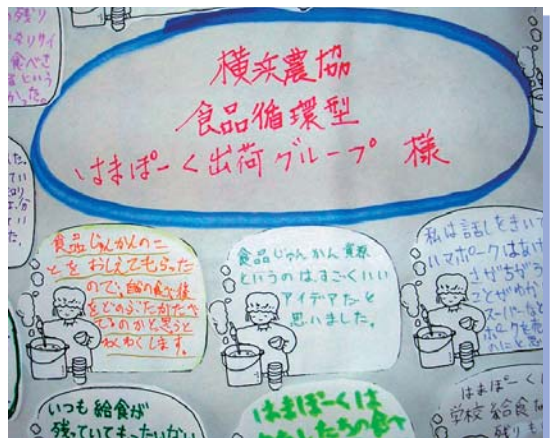 残り
リサイ
食べき
という
かった。
横浜農協
食品循環型
はまぽーく出荷グループ 様
食品じゅんかんのこ
とをおしえてもらった
ので、給の食べ後
をどのぶたがたべ
てるのかと思うと
わくわくします。
食品じゅんかん資源
というのは、すごくいい
アイデアだと
思いました。
私は話しをきいて
ハマポークはあけ
さがちがう
ことがわか
スーパーなど
ポークを売
のにと思
いつも給食が
残っていてもったいない
はまぽーくは
わたしたちの食べ
はまぽーく
学校給食な
残りも